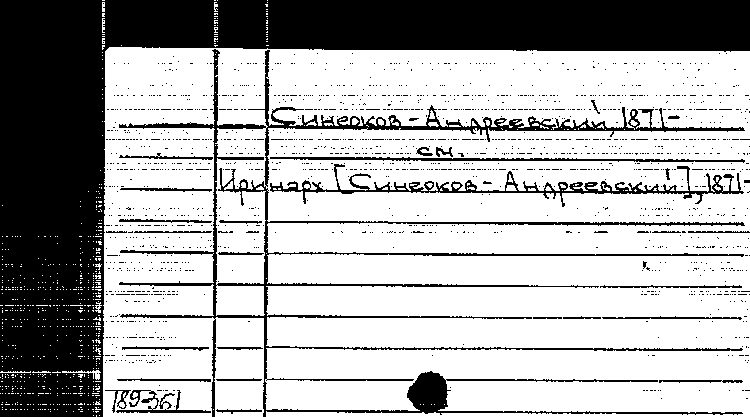 Синеоков-Андреевский, 1871-
см.
Иринарх [Синеоков-Андреевский], 1871-
189-361